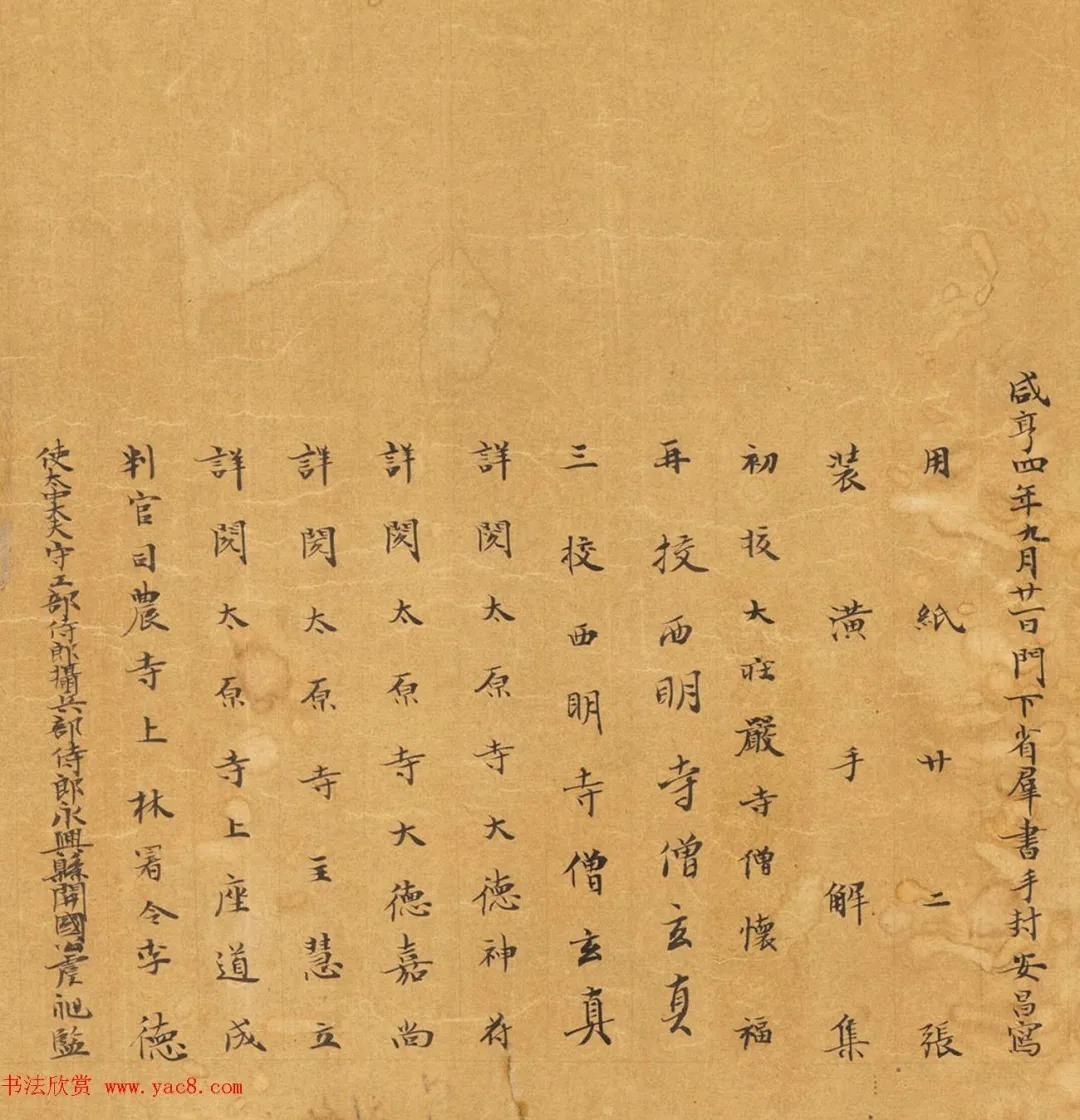 咸亨四年九月廿一日門下省群書手封安昌寫
用紙廿二張
装潢手解集
初校大莊嚴寺僧懷福
再校西明寺僧玄真
三校西明寺僧玄真
詳閱太原寺大德神苻
詳閱太原寺大德嘉尚
詳閱太原寺主慧立
詳閱太原寺上座道成
判官司農寺上林署令李德
使太中大夫守工部侍郎攝兵部侍郎永興縣開國公虞昶監
书法欣赏 www.yac8.com